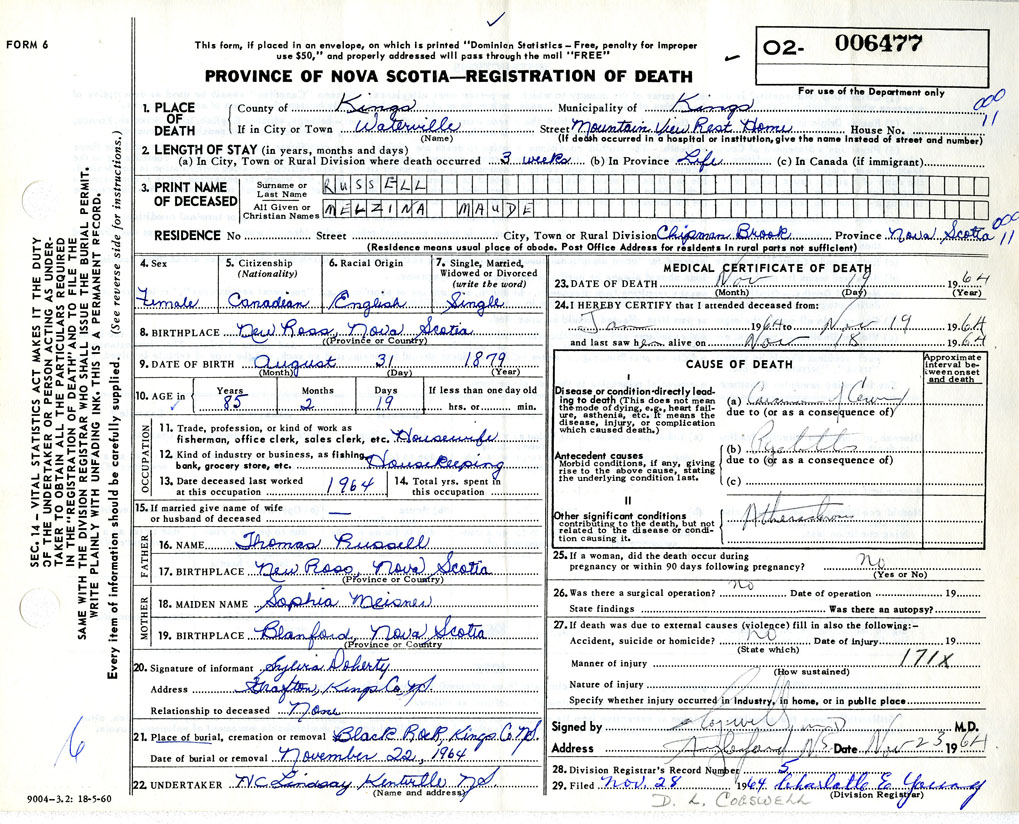 FORM 6
This form, if placed in an envelope, on which is printed "Dominian Statistics – Free, penalty for improper
use $50," and properly addressed will pass through the mail "FREE"
PROVINCE OF NOVA SCOTIA—REGISTRATION OF DEATH
O2- 006477
For use of the Department only
000
11
1. PLACE OF DEATH
County of Kings Municipality of Kings
If in City or Town Waterville Street Mountain View Rest Home House No.
(Name) (If death occurred in a hospital or institution, give the name instead of street and number)
2. LENGTH OF STAY (in years, months and days)
(a) In City, Town or Rural Division where death occurred 3 weeks (b) In Province Life (c) In Canada (if immigrant)
3. PRINT NAME OF DECEASED
Surname or Last Name RUSSELL
All Given or Christian Names MELZINA MAUDE
RESIDENCE No Street City, Town or Rural Division Chipman Brook Province Nova Scotia
000
11
(Residence means usual place of abode. Post Office Address for residents in rural parts not sufficient)
4. Sex
Female
5. Citizenship
(Nationality)
Canadian
6. Racial Origin
English
7. Single, Married,
Widowed or Divorced
(write the word)
Single
8. BIRTHPLACE New Ross, Nova Scotia
(Province or Country)
9. DATE OF BIRTH August 31 1879
(Month) (Day) (Year)
10. AGE in
Years Months Days If less than one day old
85 2 19 hrs. or min.
OCCUPATION
11. Trade, profession, or kind of work as
fisherman, office clerk, sales clerk, etc. Housewife
12. Kind of industry or business, as fishing,
bank, grocery store, etc. Housekeeping
13. Date deceased last worked
at this occupation 1964
14. Total yrs. spent in
this occupation
15. If married give name of wife
or husband of deceased —
FATHER
16. NAME Thomas Russell
17. BIRTHPLACE New Ross, Nova Scotia
(Province or Country)
MOTHER
18. MAIDEN NAME Sophia Meisner
19. BIRTHPLACE Blanford, Nova Scotia
(Province or Country)
20. Signature of informant Sylvia Doherty
Address Grafton, Kings Co. N.S.
Relationship to deceased None
21. Place of burial, cremation or removal Black Rock, Kings Co. N.S.
Date of burial or removal November 22, 1964
22. UNDERTAKER Lindsay Kentville N.S.
(Name and address)
9004-3.2: 18-5-60
MEDICAL CERTIFICATE OF DEATH
23. DATE OF DEATH Nov 19 1964
(Month) (Day) (Year)
24. I HEREBY CERTIFY that I attended deceased from:
Jan 1964 to Nov 19 1964
and last saw her alive on Nov 18 1964
CAUSE OF DEATH
Approximate interval between onset and death
I
Disease or condition directly leading to death (This does not mean the mode of dying, e.g., heart failure, asthenia, etc. It means the disease, injury, or complication which caused death.)
(a)
due to (or as a consequence of)
Antecedent causes
Morbid conditions, if any, giving rise to the above cause, stating the underlying condition last.
(b)
due to (or as a consequence of)
(c)
II
Other significant conditions
contributing to the death, but not related to the disease or condition causing it.
25. If a woman, did the death occur during
pregnancy or within 90 days following pregnancy? No
(Yes or No)
26. Was there a surgical operation? no Date of operation 19
State findings Was there an autopsy?
27. If death was due to external causes (violence) fill in also the following:–
Accident, suicide or homicide? no Date of injury 19
(State which)
Manner of injury 171X
(How sustained)
Nature of injury
Specify whether injury occurred in industry, in home, or in public place
Signed by M.D.
Address N.S. Date Nov 23 1964
28. Division Registrar's Record Number 5
29. Filed Nov. 28 1964 Charlotte E Young
(Division Registrar)
D. L. COGSWELL
SEC. 14 – VITAL STATISTICS ACT MAKES IT THE DUTY
OF THE UNDERTAKER OR PERSON ACTING AS UNDER-
TAKER TO OBTAIN ALL THE PARTICULARS REQUIRED
IN THE "REGISTRATION OF DEATH" AND TO FILE THE
SAME WITH THE DIVISION REGISTRAR WHO SHALL ISSUE THE BURIAL PERMIT.
WRITE PLAINLY WITH UNFADING INK. THIS IS A PERMANENT RECORD.
Every item of information should be carefully supplied. (See reverse side for instructions.)
6